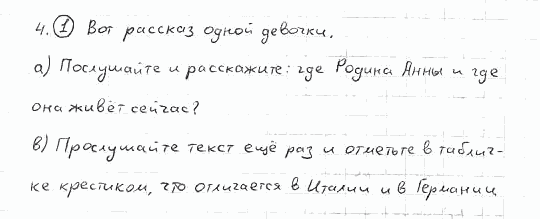 4. ① Вот рассказ одной девочки.
а) Послушайте и расскажите: где Родина Анны и где
она живёт сейчас?
в) Прослушайте текст ещё раз и отметьте в таблич-
ке крестиком, что отличается в Италии и в Германии